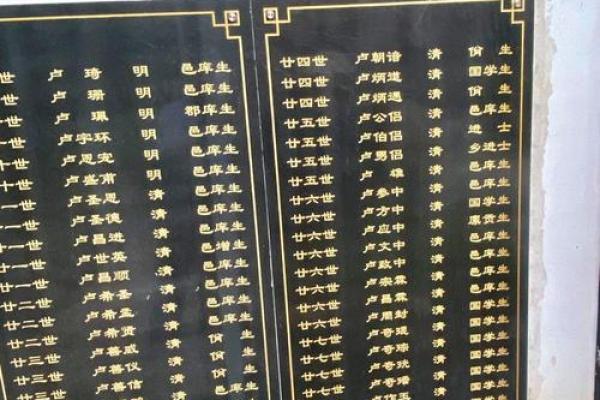 世 卢 琦 明 邑庠生
世 卢 珊 明 邑庠生
世 卢 珮 明 郡庠生
十世 卢宇环 明 邑庠生
十世 卢恩宠 明 邑庠生
十世 卢盛肃 明 邑庠生
十一世 卢圣恩 清 邑庠生
十一世 卢圣德 清 邑庠生
一世 卢昌进 清 邑庠生
一世 卢世英 清 邑增生
廿一世 卢昌顺 清 邑庠生
廿二世 卢希圣 清 邑庠生
廿二世 卢希孟 清 邑庠生
廿二世 卢希贤 清 邑庠生
廿三世 卢善威 清 佾生
廿三世 卢善仪 清 佾生
卢善信 清 邑庠生
廿四世 卢朝谙 清 佾生
廿四世 卢炳道 清 国学生
廿四世 卢炳遇 清 佾生
廿五世 卢公侣 清 邑庠生
廿五世 卢伯侣 清 进士
廿五世 卢勇侣 清 乡进士
廿五世 卢 雄 清 邑庠生
廿六世 卢参中 清 邑庠生
廿六世 卢方中 清 国学生
廿六世 卢应中 清 惠贡生
廿六世 卢文中 清 邑庠生
廿六世 卢政中 清 邑庠生
廿六世 卢崇霖 清 国学生
廿六世 卢昌霖 清 国学生
廿六世 卢周封 清 国学生
廿七世 卢奇琨 清 国学生
廿七世 卢奇 清 国学生
廿七世 卢奇 清 国学生